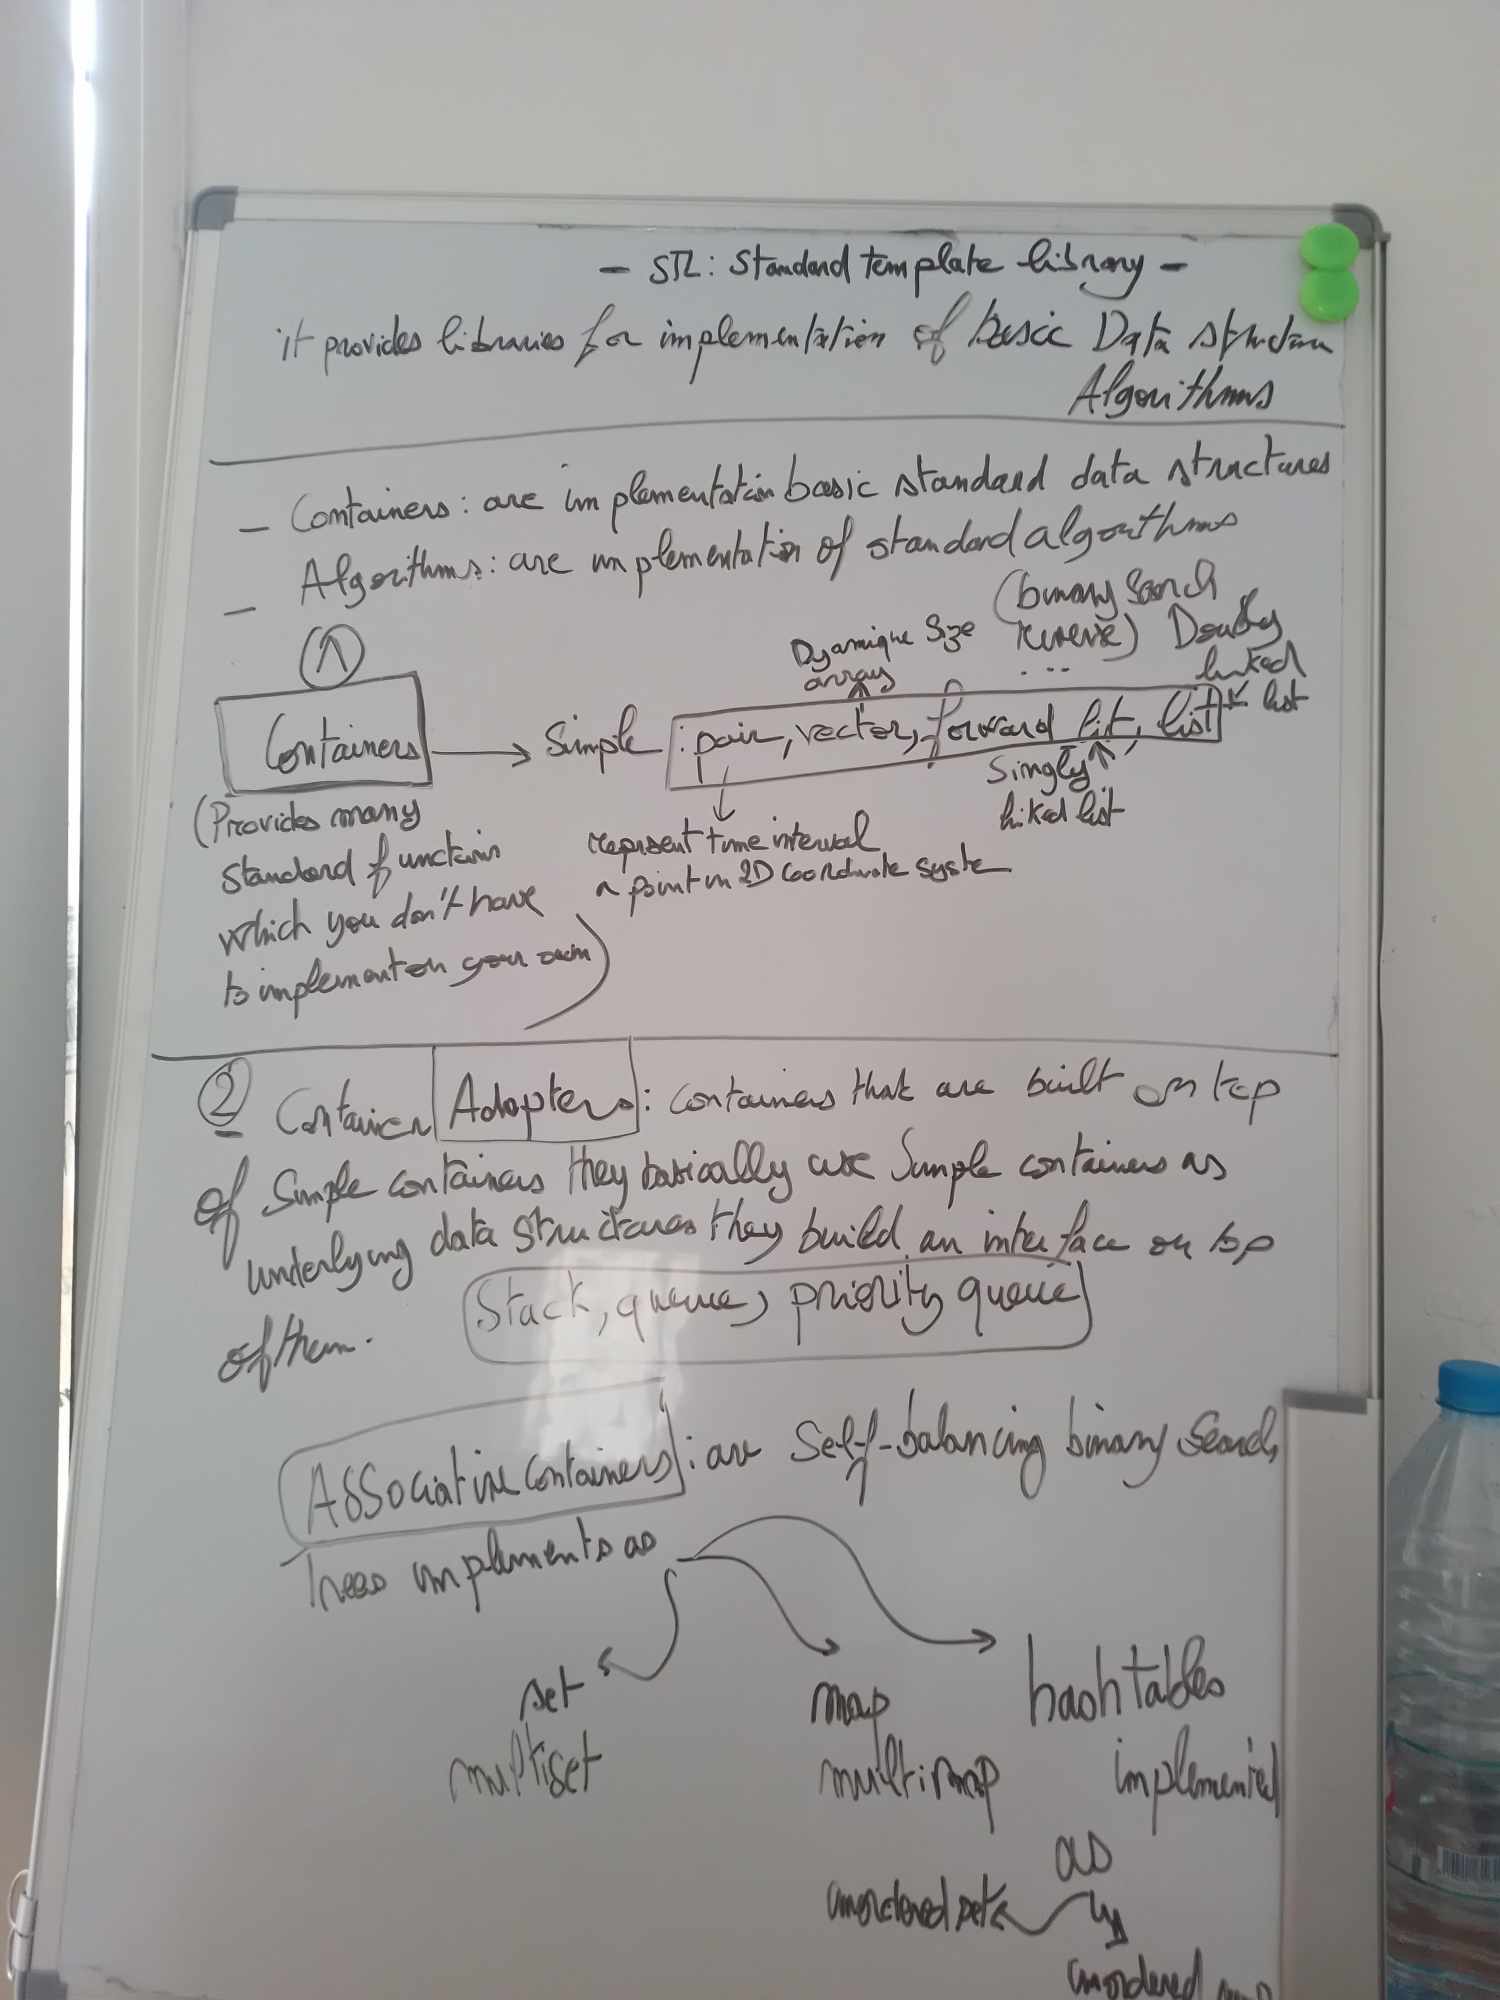 - STL: Standard template library -
it provides libraries for implementation of basic Data structure
Algorithms
- Containers: are implementation basic standard data structures
- Algorithms: are implementation of standard algorithms
(binary search
reverse)
...
1
Containers
Simple : pair, vector, forward list, list
Dynamique Size
arrays
Doubly
linked
list
Singly
linked list
represent time interval
a point in 2D coordinate system
(Provides many
standard function
which you don't have
to implement on your own)
2 Container Adapters: containers that are built on top
of Simple containers they basically use Simple containers as
underlying data structures they build an interface on top
of them.
Stack, queue, priority queue
Associative containers: are Self-balancing binary Search
Trees implements as
set
multiset
map
multimap
hash tables
implemented
as
unordered set
unordered map